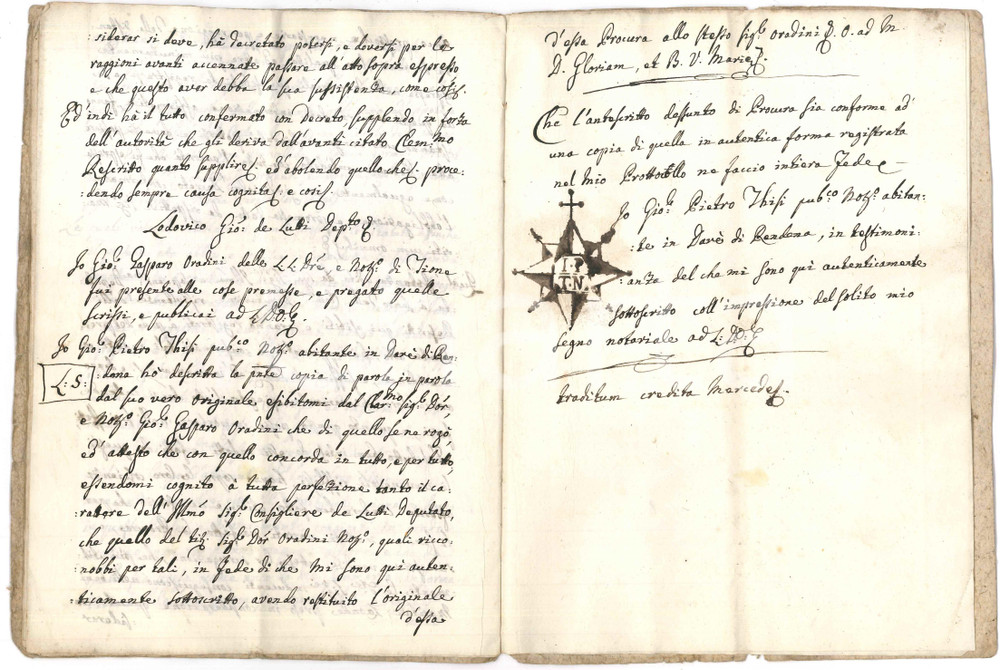 :siderar si deve, hà decretato potersi, e doversi per le
raggioni avanti accennate passare all'atto sopra espresso
e che questo aver debba la sua sussistenza, come così.
Ed'indi hà il tutto confermato con Decreto supplendo in forza
dell'autorità che gli deriva dall'avanti citato Clem:mo
Rescritto quanto supplire ed'abolendo quello che proce:
:dendo sempre causa cognita: e così.
Lodovico Gio: de Lutti Dep:to
Io Gio: Gasparo Oradini delle LL: Dre e Not: di Tione
fui presente alle cose premesse, e pregato quelle
scrissi, e publicai ad L: D:
Io Gio: Pietro Thisi pub:co Not: abitante in Darè di Ren:
L: S:
:dena ho descritta la pnte copia di parola in parola
dal suo vero originale esibitomi dal Clar:mo sig: Dor,
e Not: Gio: Gasparo Oradini che di quello se ne rogò,
ed'attesto che con quello concorda in tutto, e per tutto,
essendomi cognito à tutta perfezione tanto il ca:
:rattere dell'Illmo sig: Consigliere de Lutti Deputato,
che quello del sig: Dor Oradini Not:, quali ricco:
:nobbi per tali, in Fede di che mi sono qui auten:
:ticamente sottoscritto, avendo restituito l'originale
d'essa
d'essa Procura allo stesso sig: Oradini O. ad M
D. Gloriam, et B. V. Marie.
Che l'antescritto dessunto di Procura sia conforme ad'
una copia di quella in autentica forma registrata
nel mio Prottocollo ne faccio intiera Fede
Io Gio: Pietro Thisi pub:co Not: abitan:
:te in Darè di Rendena, in testimoni:
:anza del che mi sono qui autenticamente
sottoscritto coll'impressione del solito mio
segno notariale ad L: D:
I P
T. N.
traditum credita Mercede.